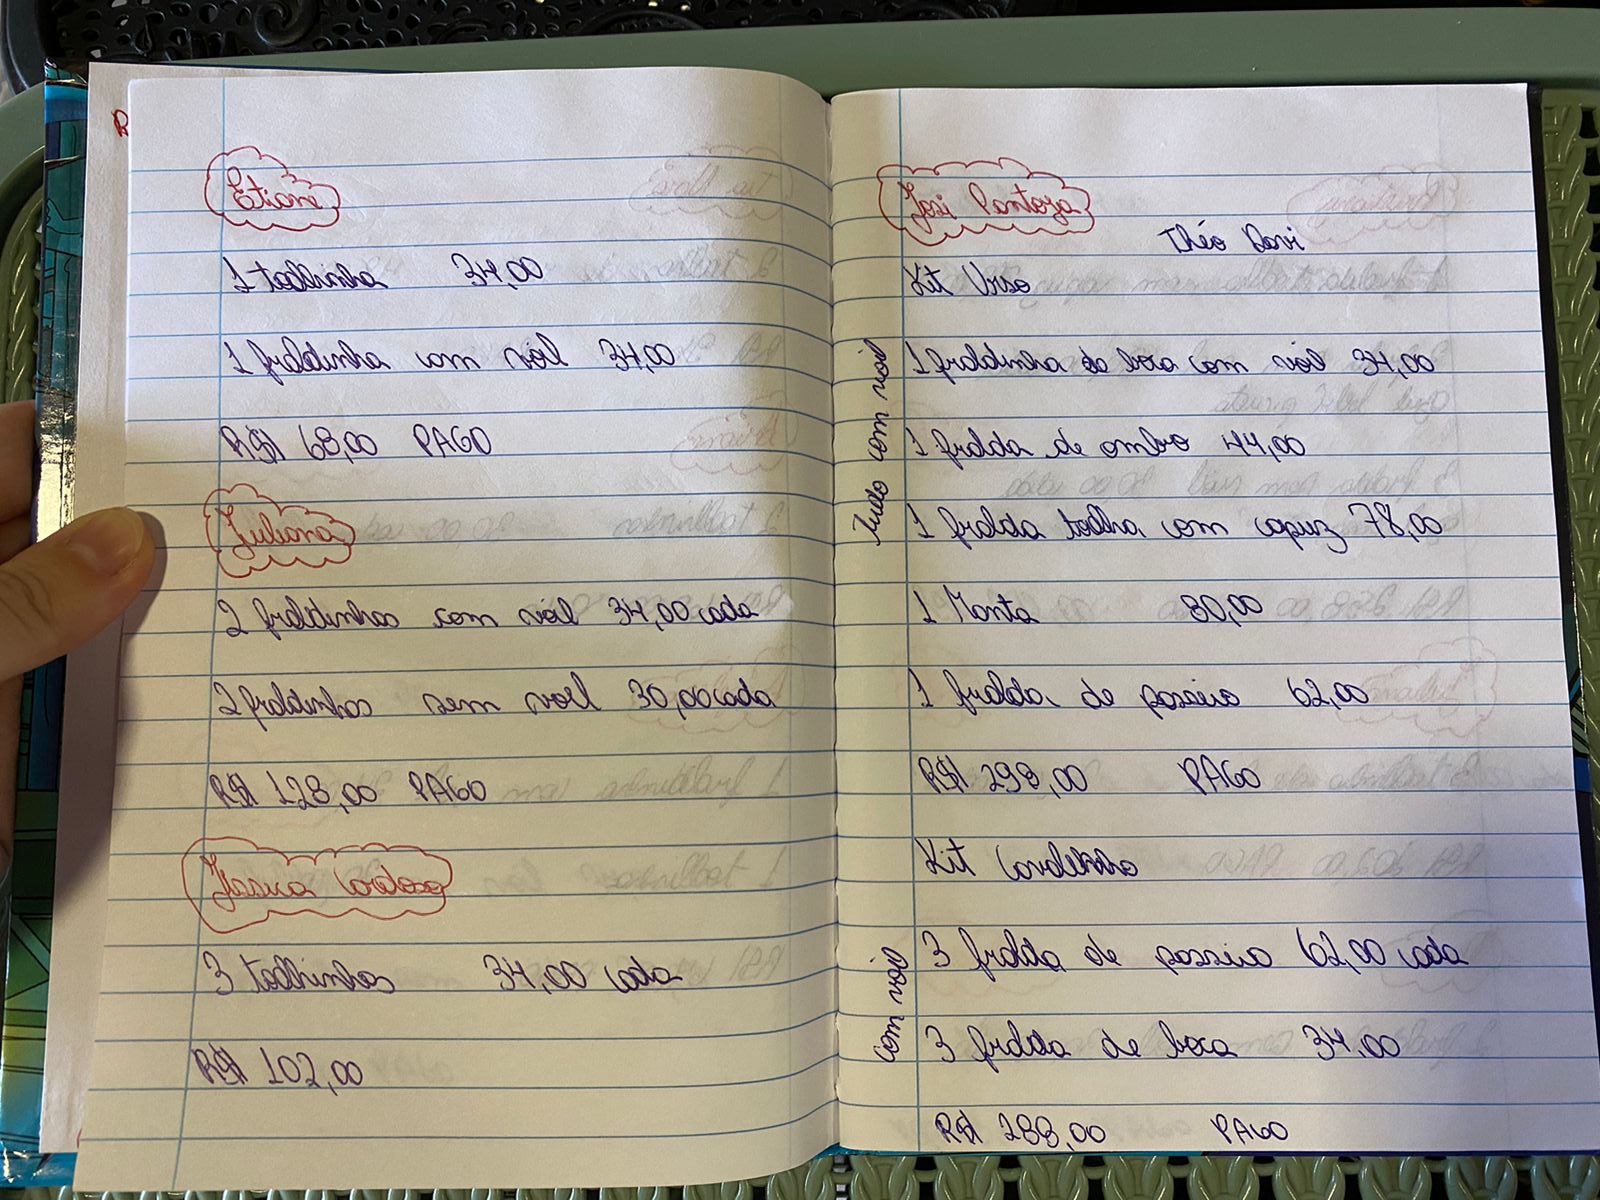 Etiane
1 toalhinha 34,00
1 fraldinha com viól 34,00
R$ 68,00 PAGO
Juliana
2 fraldinhas com viól 34,00 cada
2 fraldinhas sem voel 30,00 cada
R$ 128,00 PAGO
Cardoso
3 toalhinhas 34,00 cada
R$ 102,00
José Pantoja
Théo Davi
Kit Urso
Tudo com viól
1 fraldinha de boca com viól 34,00
1 fralda de ombro 44,00
1 fralda toalha com capuz 78,00
1 Manta 80,00
1 fralda de passeio 62,00
R$ 298,00 PAGO
Kit Cordeirinho
com viól
3 fralda de passeio 62,00 cada
3 fralda de boca 34,00
R$ 288,00 PAGO